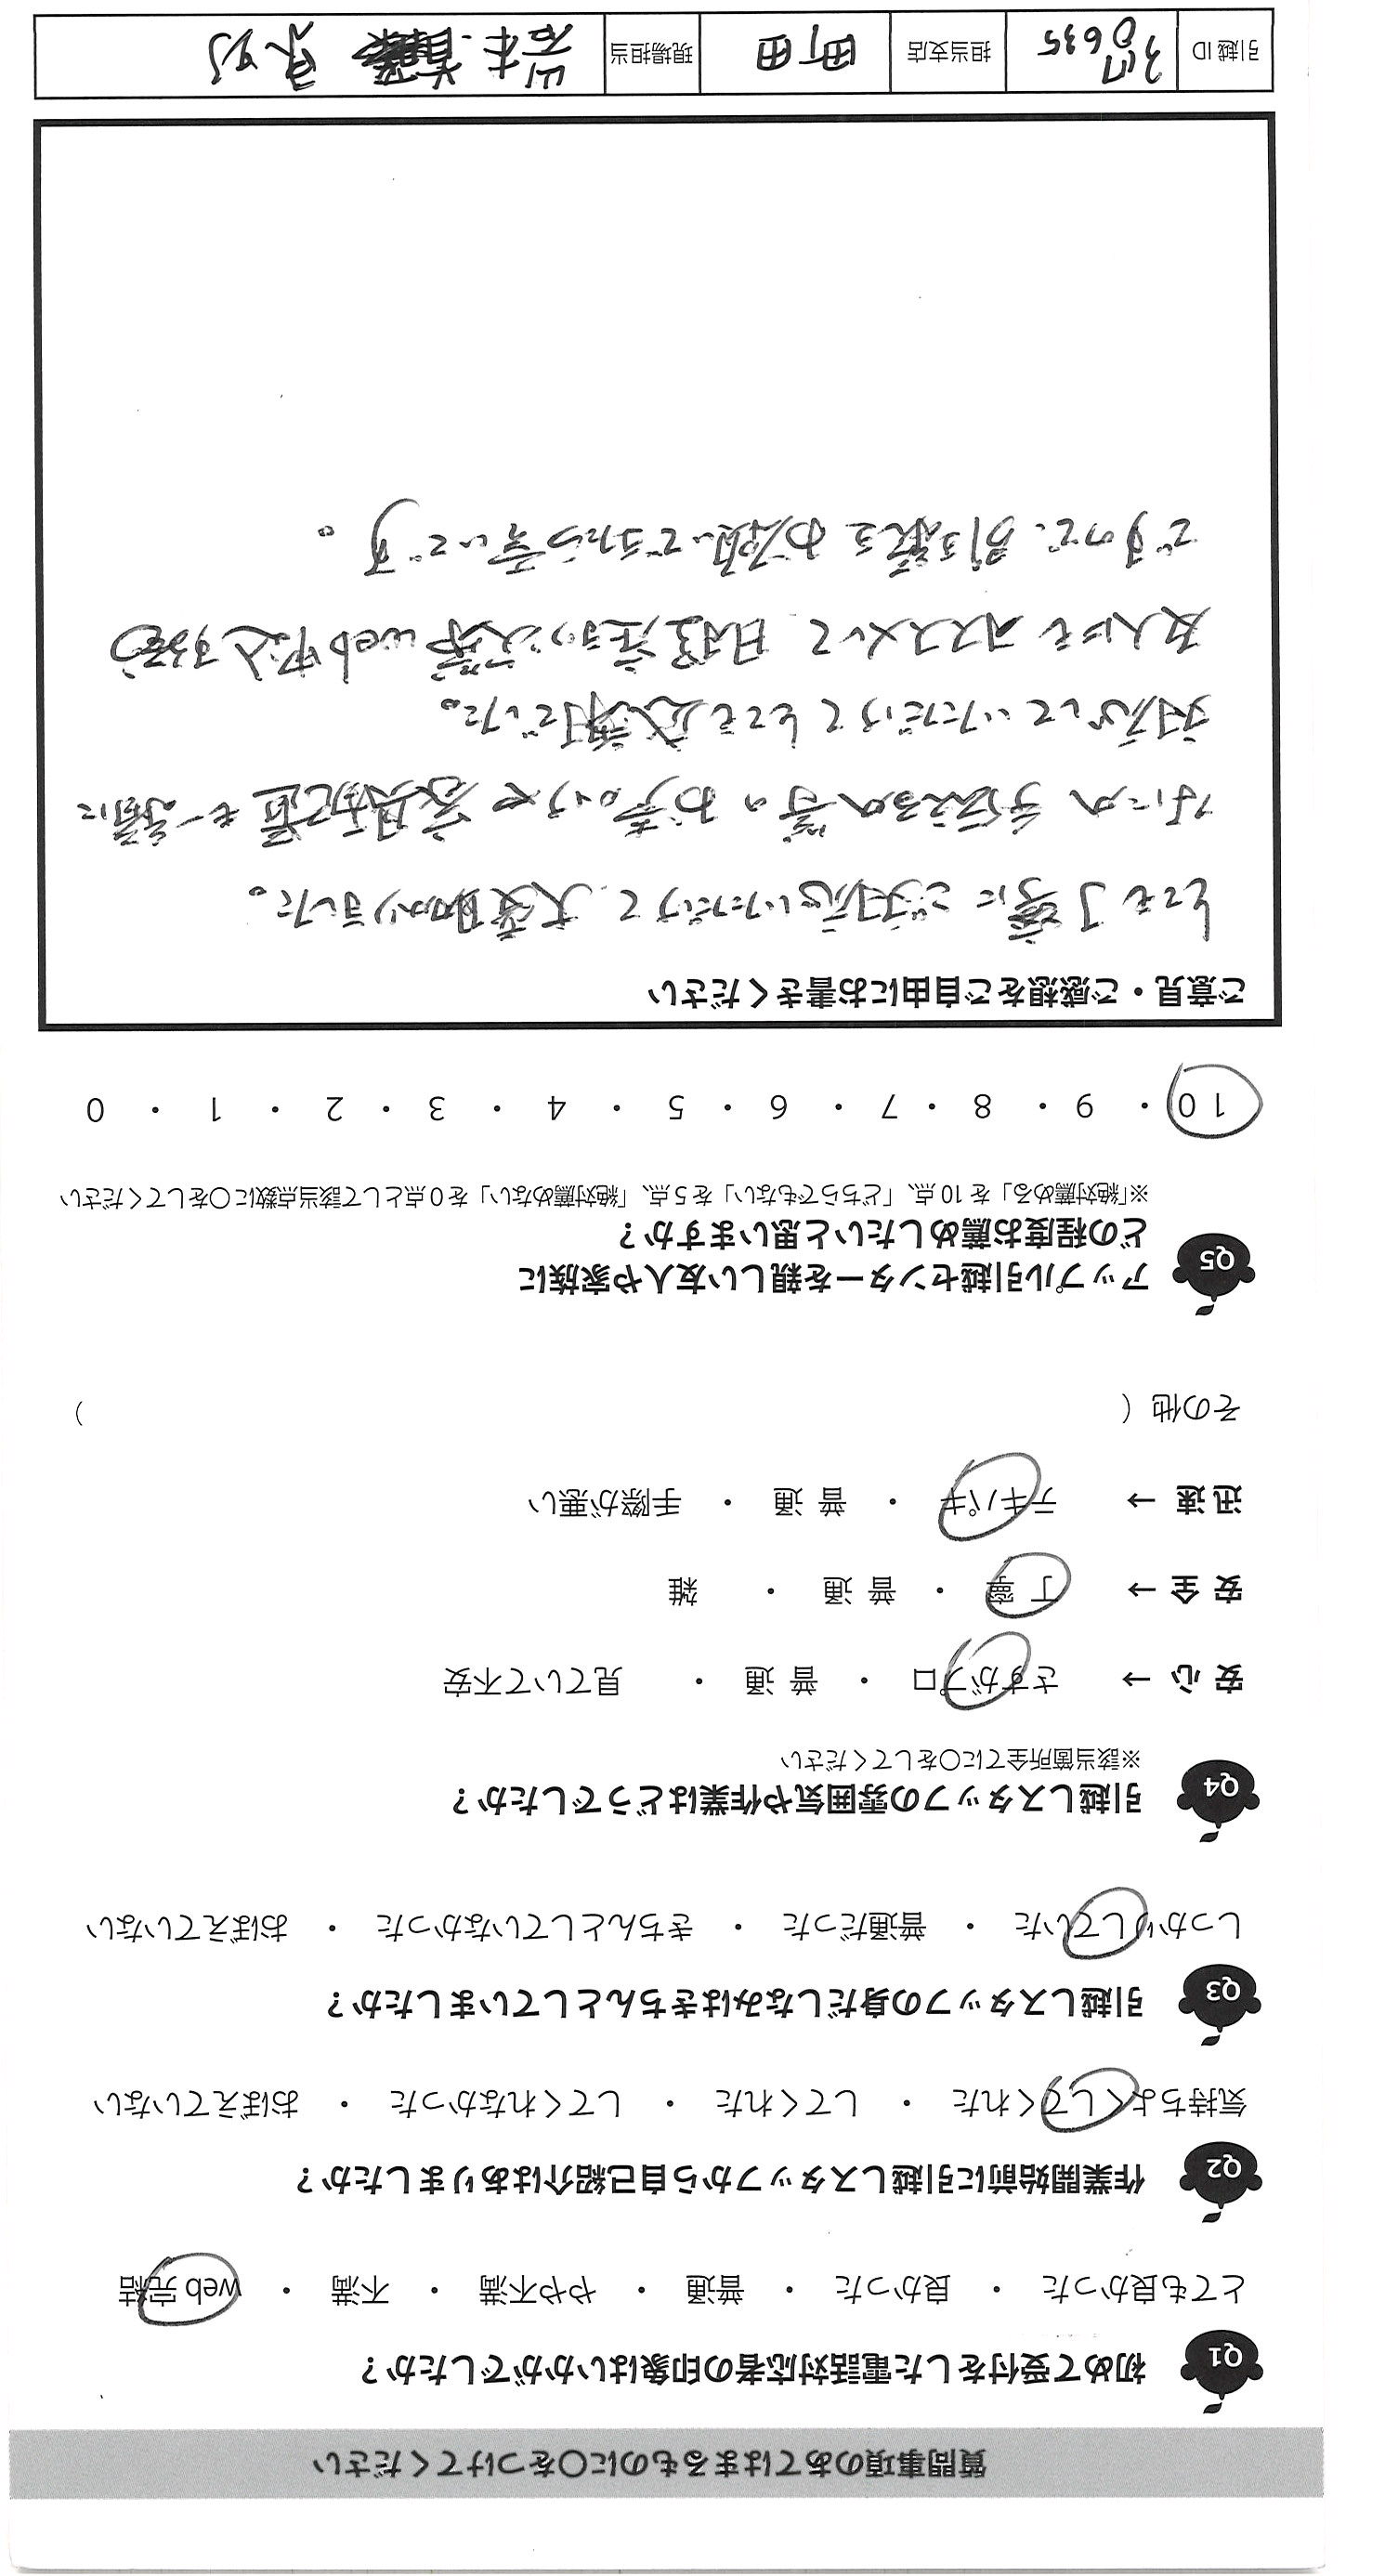 質問事項のあてはまるものに〇をつけてください
Q1 初めて受付をした電話対応者の印象はいかがでしたか？
とても良かった ・ 良かった ・ 普通 ・ やや不満 ・ 不満 ・ web 完結
Q2 作業開始前に引越しスタッフから自己紹介はありましたか？
気持ちよくしてくれた ・ してくれた ・ してくれなかった ・ おぼえていない
Q3 引越しスタッフの身だしなみはきちんとしていましたか？
しっかりしていた ・ 普通だった ・ きちんとしていなかった ・ おぼえていない
Q4 引越しスタッフの雰囲気や作業はどうでしたか？
※該当箇所全てに〇をしてください
安 心 → さすがプロ ・ 普 通 ・ 見ていて不安
安 全 → 丁 寧 ・ 普 通 ・ 雑
迅 速 → テキパキ ・ 普 通 ・ 手際が悪い
その他（ ）
Q5 アップル引越センターを親しい友人や家族に
どの程度お薦めしたいと思いますか？
※「絶対薦める」を 10 点、「どちらでもない」を 5 点、「絶対薦めない」を 0 点として該当点数に〇をしてください
10 ・ 9 ・ 8 ・ 7 ・ 6 ・ 5 ・ 4 ・ 3 ・ 2 ・ 1 ・ 0
ご意見・ご感想をご自由にお書きください
とても丁寧にご対応いただけて、大変助かりました。
なにか手伝えるか等のお声がけや家具配置も一緒に
対応していただけてとても感謝でした。
友人にもオススメして、日程 次第web申込する
ですので、引き続きお願いできたら幸いです。
引越 ID 担当支店 町田 現場担当 岩本